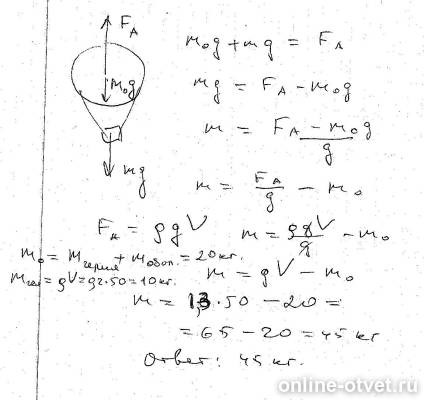 F_A
m₀g
mg
m₀g + mg = F_A
mg = F_A − m₀g
m = (F_A − m₀g)/g
m = F_A/g − m₀
F_A = ρgV
m = ρgV/g − m₀
m₀ = m гелия + m обол. = 20 кг.
m гел = ρV = ρг·50 = 10 кг.
m = ρV − m₀
m = 1,3 · 50 − 20 =
= 65 − 20 = 45 кг
Ответ: 45 кг.
online-otvet.ru